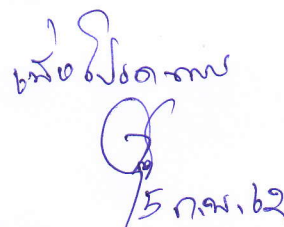 เพื่อโปรดทราบ
5 ก.พ. 62